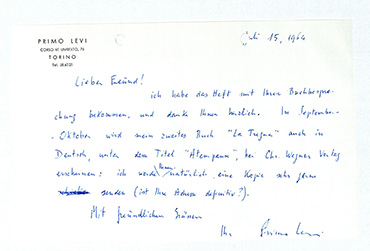 PRIMO LEVI
CORSO RE UMBERTO, 75
TORINO
Juli 15, 1964
Lieber Freund!
ich habe das Heft mit Ihrer Buchbespre-
chung bekommen, und danke Ihnen herzlich. Im September-
Oktober wird mein zweites Buch "La Tregua" auch in
Deutsch, unter dem Titel "Atempause", bei Chr. Wegner Verlag
erscheinen: ich werde Ihnen natürlich eine Kopie sehr gerne
senden (ist Ihre Adresse definitiv?).
Mit freundlichen Grüssen
Ihr Primo Levi